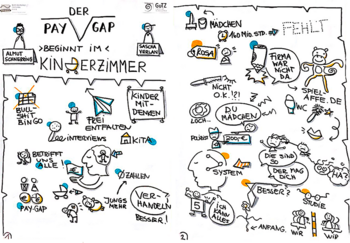 DER
PAY GAP
BEGINNT IM
KINDERZIMMER
ALMUT
SCHNERRING
SASCHA
VERLAN
BULL-
SHIT
BINGO
FREI
ENTFALTEN
KINDER
MIT-
DENKEN
INTERVIEWS
KITA
BETRIFFT
UNS
ALLE
ZAHLEN
PAY-GAP
JUNGS
MEHR
VER-
HANDELN
BESSER!
1
MÄDCHEN
FEHLT
ROSA
FIRMA
WAR
NICHT
DA
NICHT
O.K.?!?!
SPIEL
AFFE.DE
WC
LOCH
DU
MÄDCHEN
DIE SIND
SO
DER MAG
DICH
HA?
SYSTEM
BESSER?
STUDIE
5
ICH
KANN
ALLES
ANFANG.
WIR
WIR
2